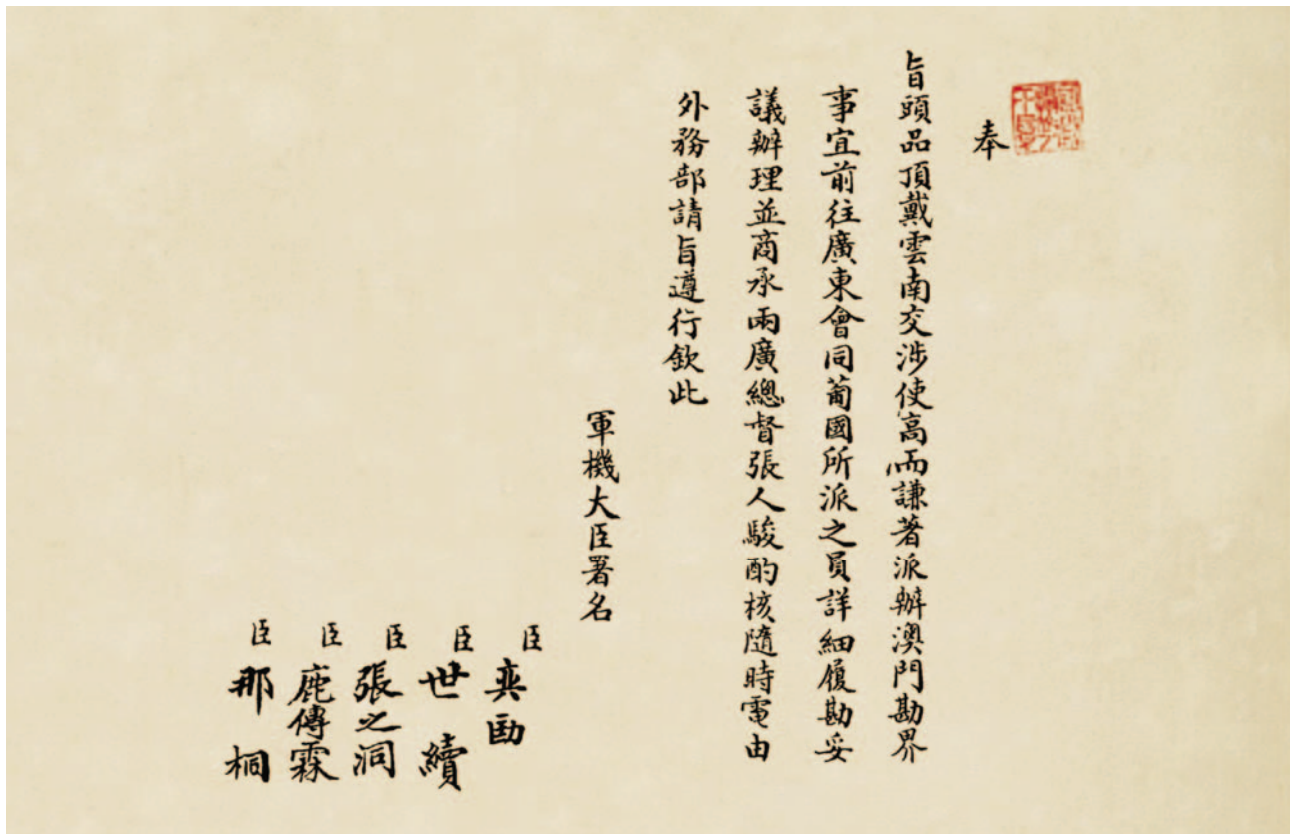 奉
旨頭品頂戴雲南交涉使高而謙著派辦澳門勘界
事宜前往廣東會同葡國所派之員詳細履勘妥
議辦理並商承兩廣總督張人駿酌核隨時電由
外務部請旨遵行欽此
軍機大臣署名
臣奕劻
臣世續
臣張之洞
臣鹿傳霖
臣那桐